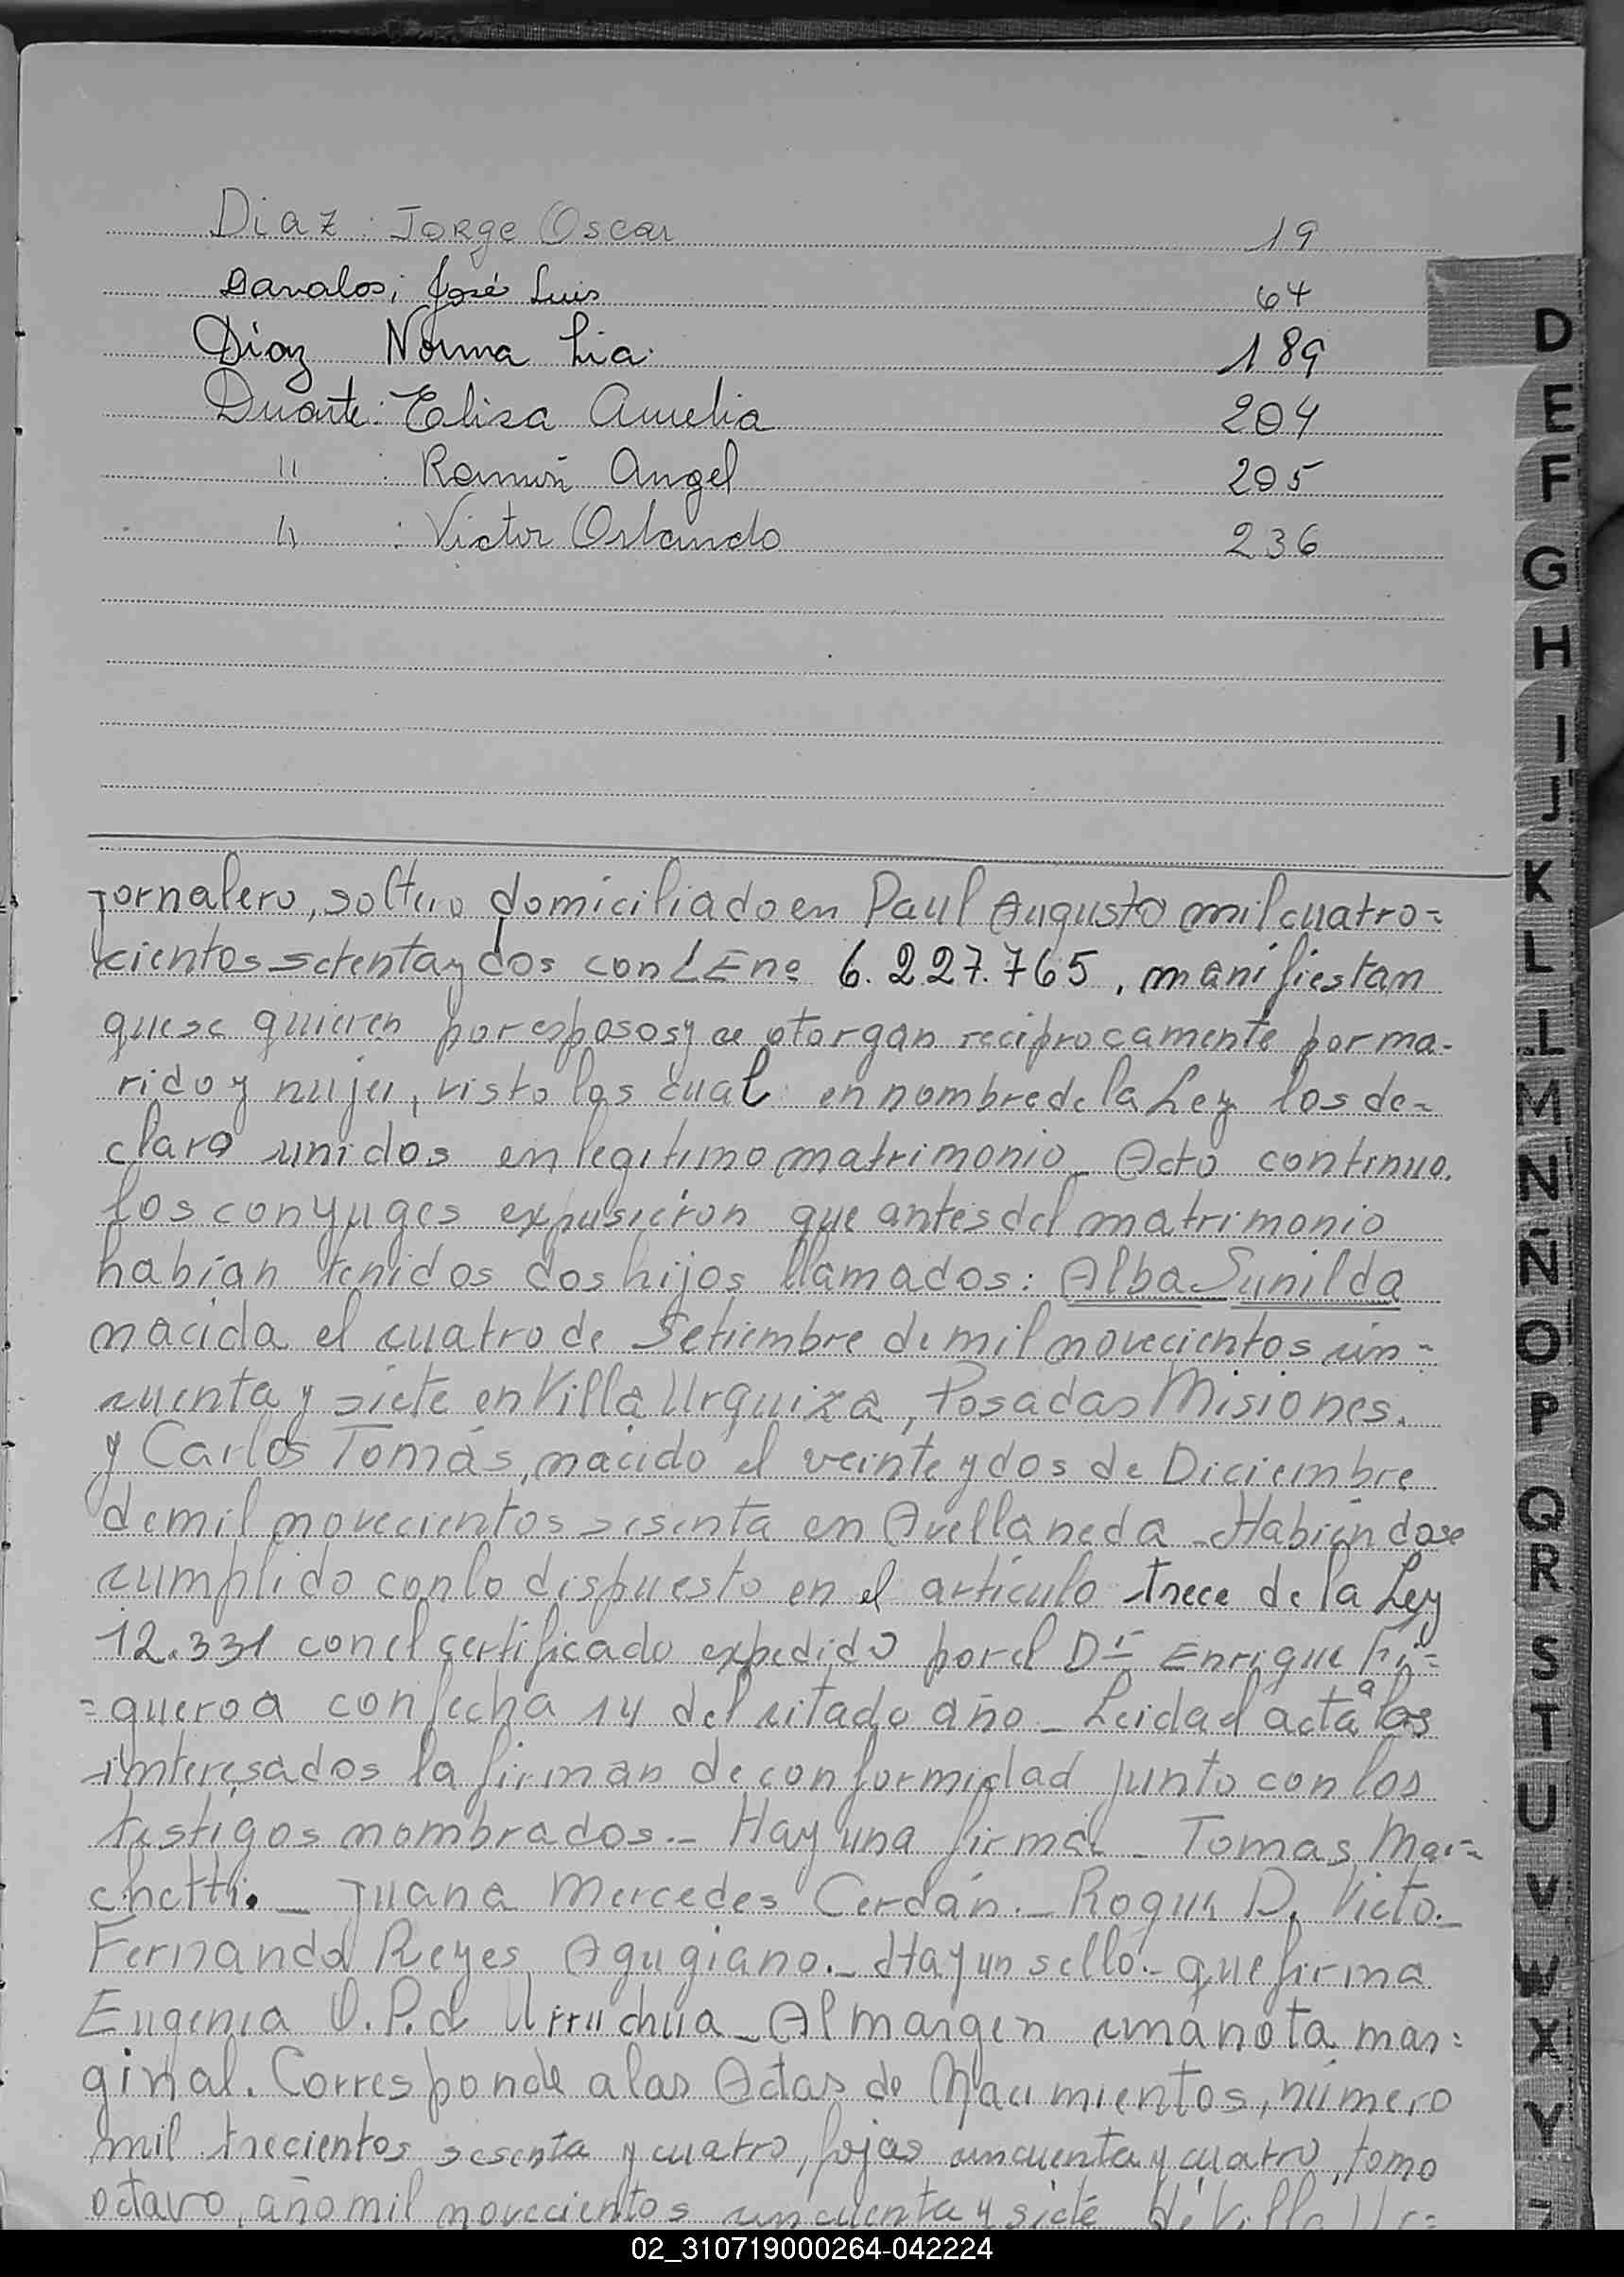 Diaz : Jorge Oscar 19
Davalos; José Luis 64
Diaz Norma Lia. 189
Duarte: Elisa Amelia 204
" : Ramón Angel 205
" : Victor Orlando 236
D
E
F
G
H
I
J
K
L
LL
M
N
Ñ
O
P
Q
R
S
T
U
V
W
X
Y
Z
Jornalero, soltero domiciliado en Paul Augusto mil cuatro=
cientos setenta y dos con L E nº 6.227.765, manifiestan
que se quieren por esposos y se otorgan reciprocamente por ma-
rido y mujer, visto los cual en nombre de la Ley los de=
claro unidos en legitimo matrimonio_ Acto continuo.
los conyuges expusieron que antes del matrimonio
habían tenidos dos hijos llamados: Alba Sunilda
nacida el cuatro de Setiembre de mil novecientos cin=
cuenta y siete en Villa Urquiza, Posadas Misiones.
y Carlos Tomás, nacido el veinte y dos de Diciembre
de mil novecientos sesenta en Avellaneda - Habiéndose
cumplido con lo dispuesto en el artículo trece de la Ley
12.331 con el certificado expedido por el Dr Enrique Fi=
=gueroa con fecha 14 del citado año _ Leida el acta a los
interesados la firman de conformidad junto con los
testigos nombrados.- Hay una firma - Tomas Mar=
chetti. _ Juana Mercedes Cerdán._ Roque D. Victo._
Fernando Reyes Agugiano._ Hay un sello._ que firma
Eugenia O. P. de Urruchua _ Al margen una nota mar=
ginal. Corresponde a las Actas de Nacimientos, número
mil trecientos sesenta y cuatro, fojas cincuenta y cuatro, tomo
octavo, año mil novecientos cincuenta y siete de Villa Ur=
02_310719000264-042224